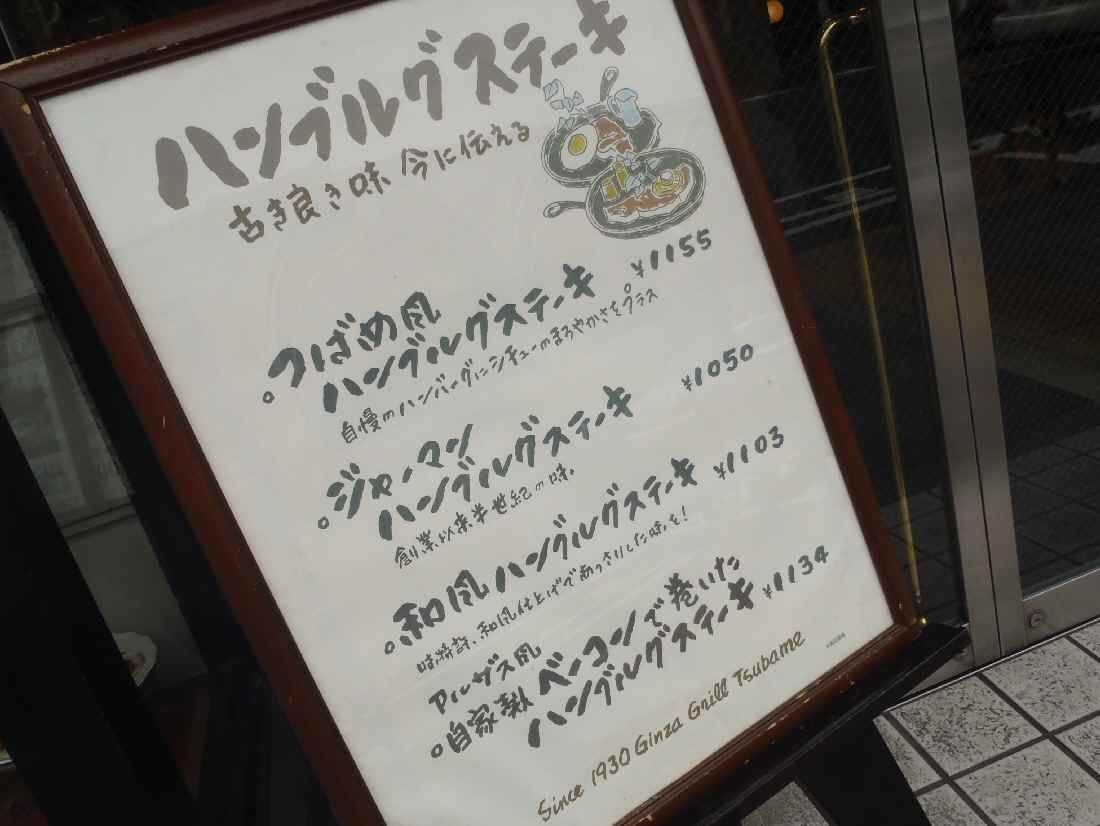 ハンブルグステーキ
古き良き味 今に伝える
つばめ風
ハンブルグステーキ ¥1155
自慢のハンバーグにシチューのまろやかさをプラス
ジャーマン
ハンブルグステーキ ¥1050
創業以来半世紀の味。
和風ハンブルグステーキ ¥1103
味特許、和風仕上げであっさりした味を!
アルザス風
自家製ベーコンで巻いた
ハンブルグステーキ ¥1134
Since 1930 Ginza Grill Tsubame